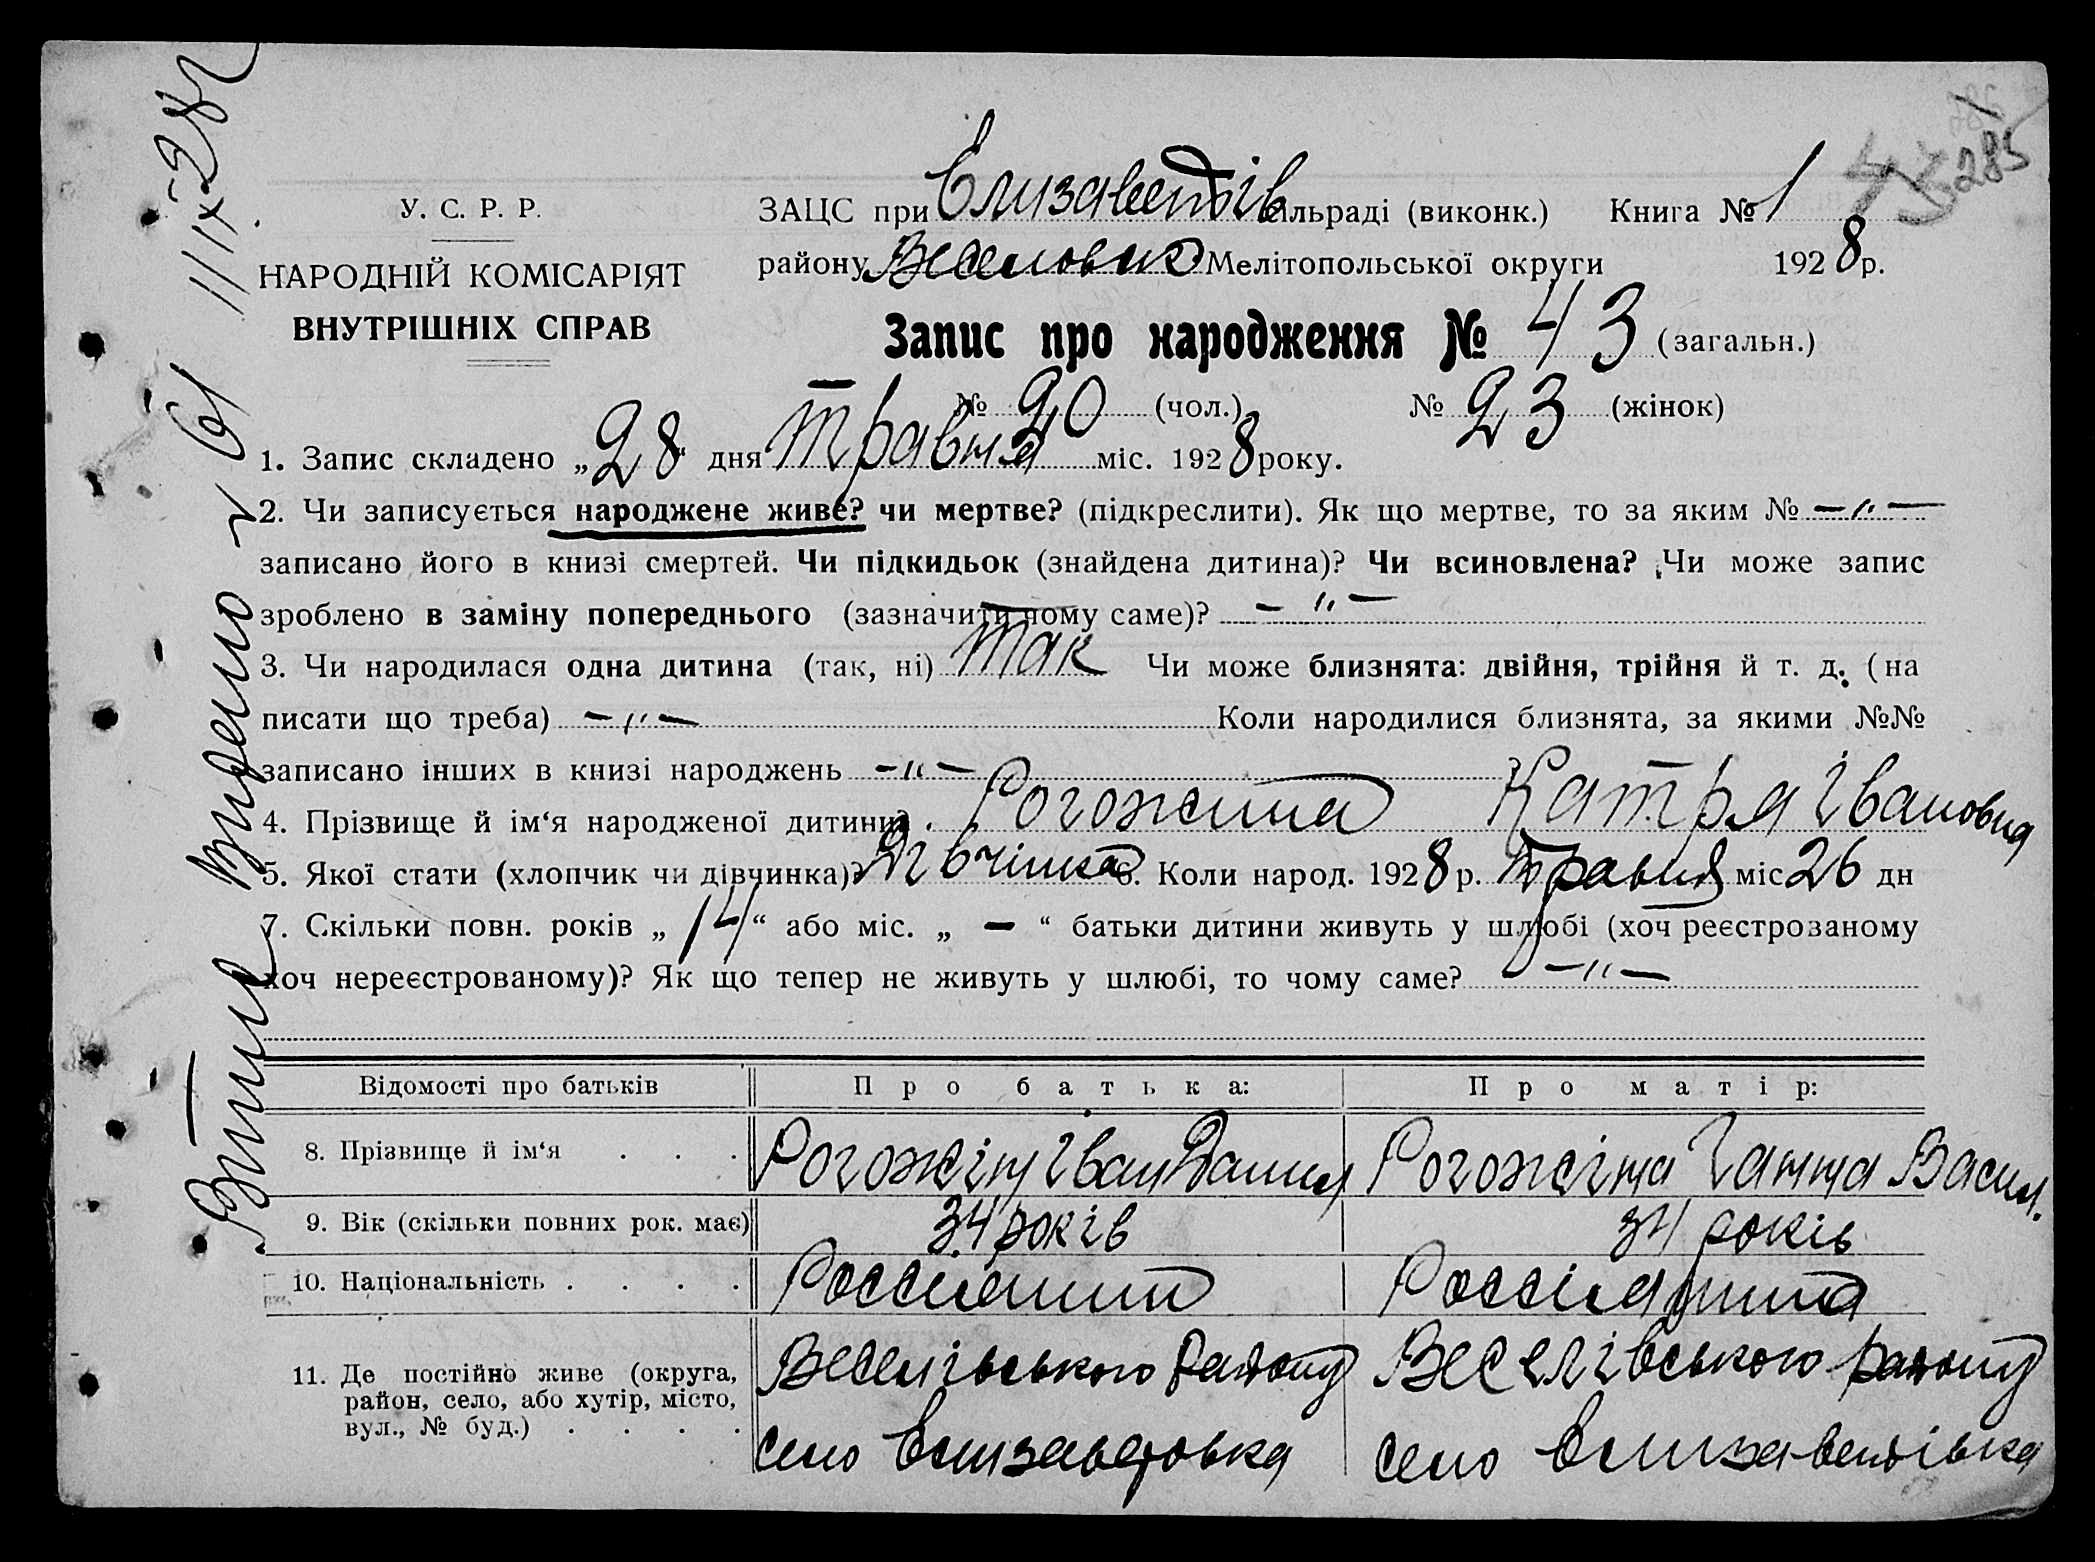 У. С. Р. Р.
НАРОДНІЙ КОМІСАРІЯТ
ВНУТРІШНІХ СПРАВ
ЗАЦС при Єлизаветів сільраді (виконк.) Книга № 1
285
району Веселовсько Мелітопольської округи 1928 р.
Запис про народження № 43 (загальн.)
№ 20 (чол.) № 23 (жінок)
1. Запис складено „28“ дня Травня міс. 1928 року.
2. Чи записується народжене живе? чи мертве? (підкреслити). Як що мертве, то за яким № —"—
записано його в книзі смертей. Чи підкидьок (знайдена дитина)? Чи всиновлена? Чи може запис
зроблено в заміну попереднього (зазначити чому саме)? —"—
3. Чи народилася одна дитина (так, ні) Так Чи може близнята: двійня, трійня й т. д. (на
писати що треба) —"— Коли народилися близнята, за якими №№
записано інших в книзі народжень —"—
4. Прізвище й ім‘я народженої дитини Рогожина Катря Івановна
5. Якої стати (хлопчик чи дівчинка)? Дівчінка 6. Коли народ. 1928 р. Травня міс 26 дн
7. Скільки повн. років „14“ або міс. „—“ батьки дитини живуть у шлюбі (хоч реєстрованому
хоч нереєстрованому)? Як що тепер не живуть у шлюбі, то чому саме? —"—
Відомості про батьків Про батька: Про матір:
8. Прізвище й ім‘я . . . Рогожін Іван Данил Рогожіна Ганна Васил.
9. Вік (скільки повних рок. має) 34 років 34 років
10. Національність . . . . Россіянин Россіянина
11. Де постійно живе (округа, район, село, або хутір, місто, вул., № буд.) . . . .
Веселівського району Веселівського району
село Єлизаветовка село Єлизаветівка
Витяг видано 11/IX-28р